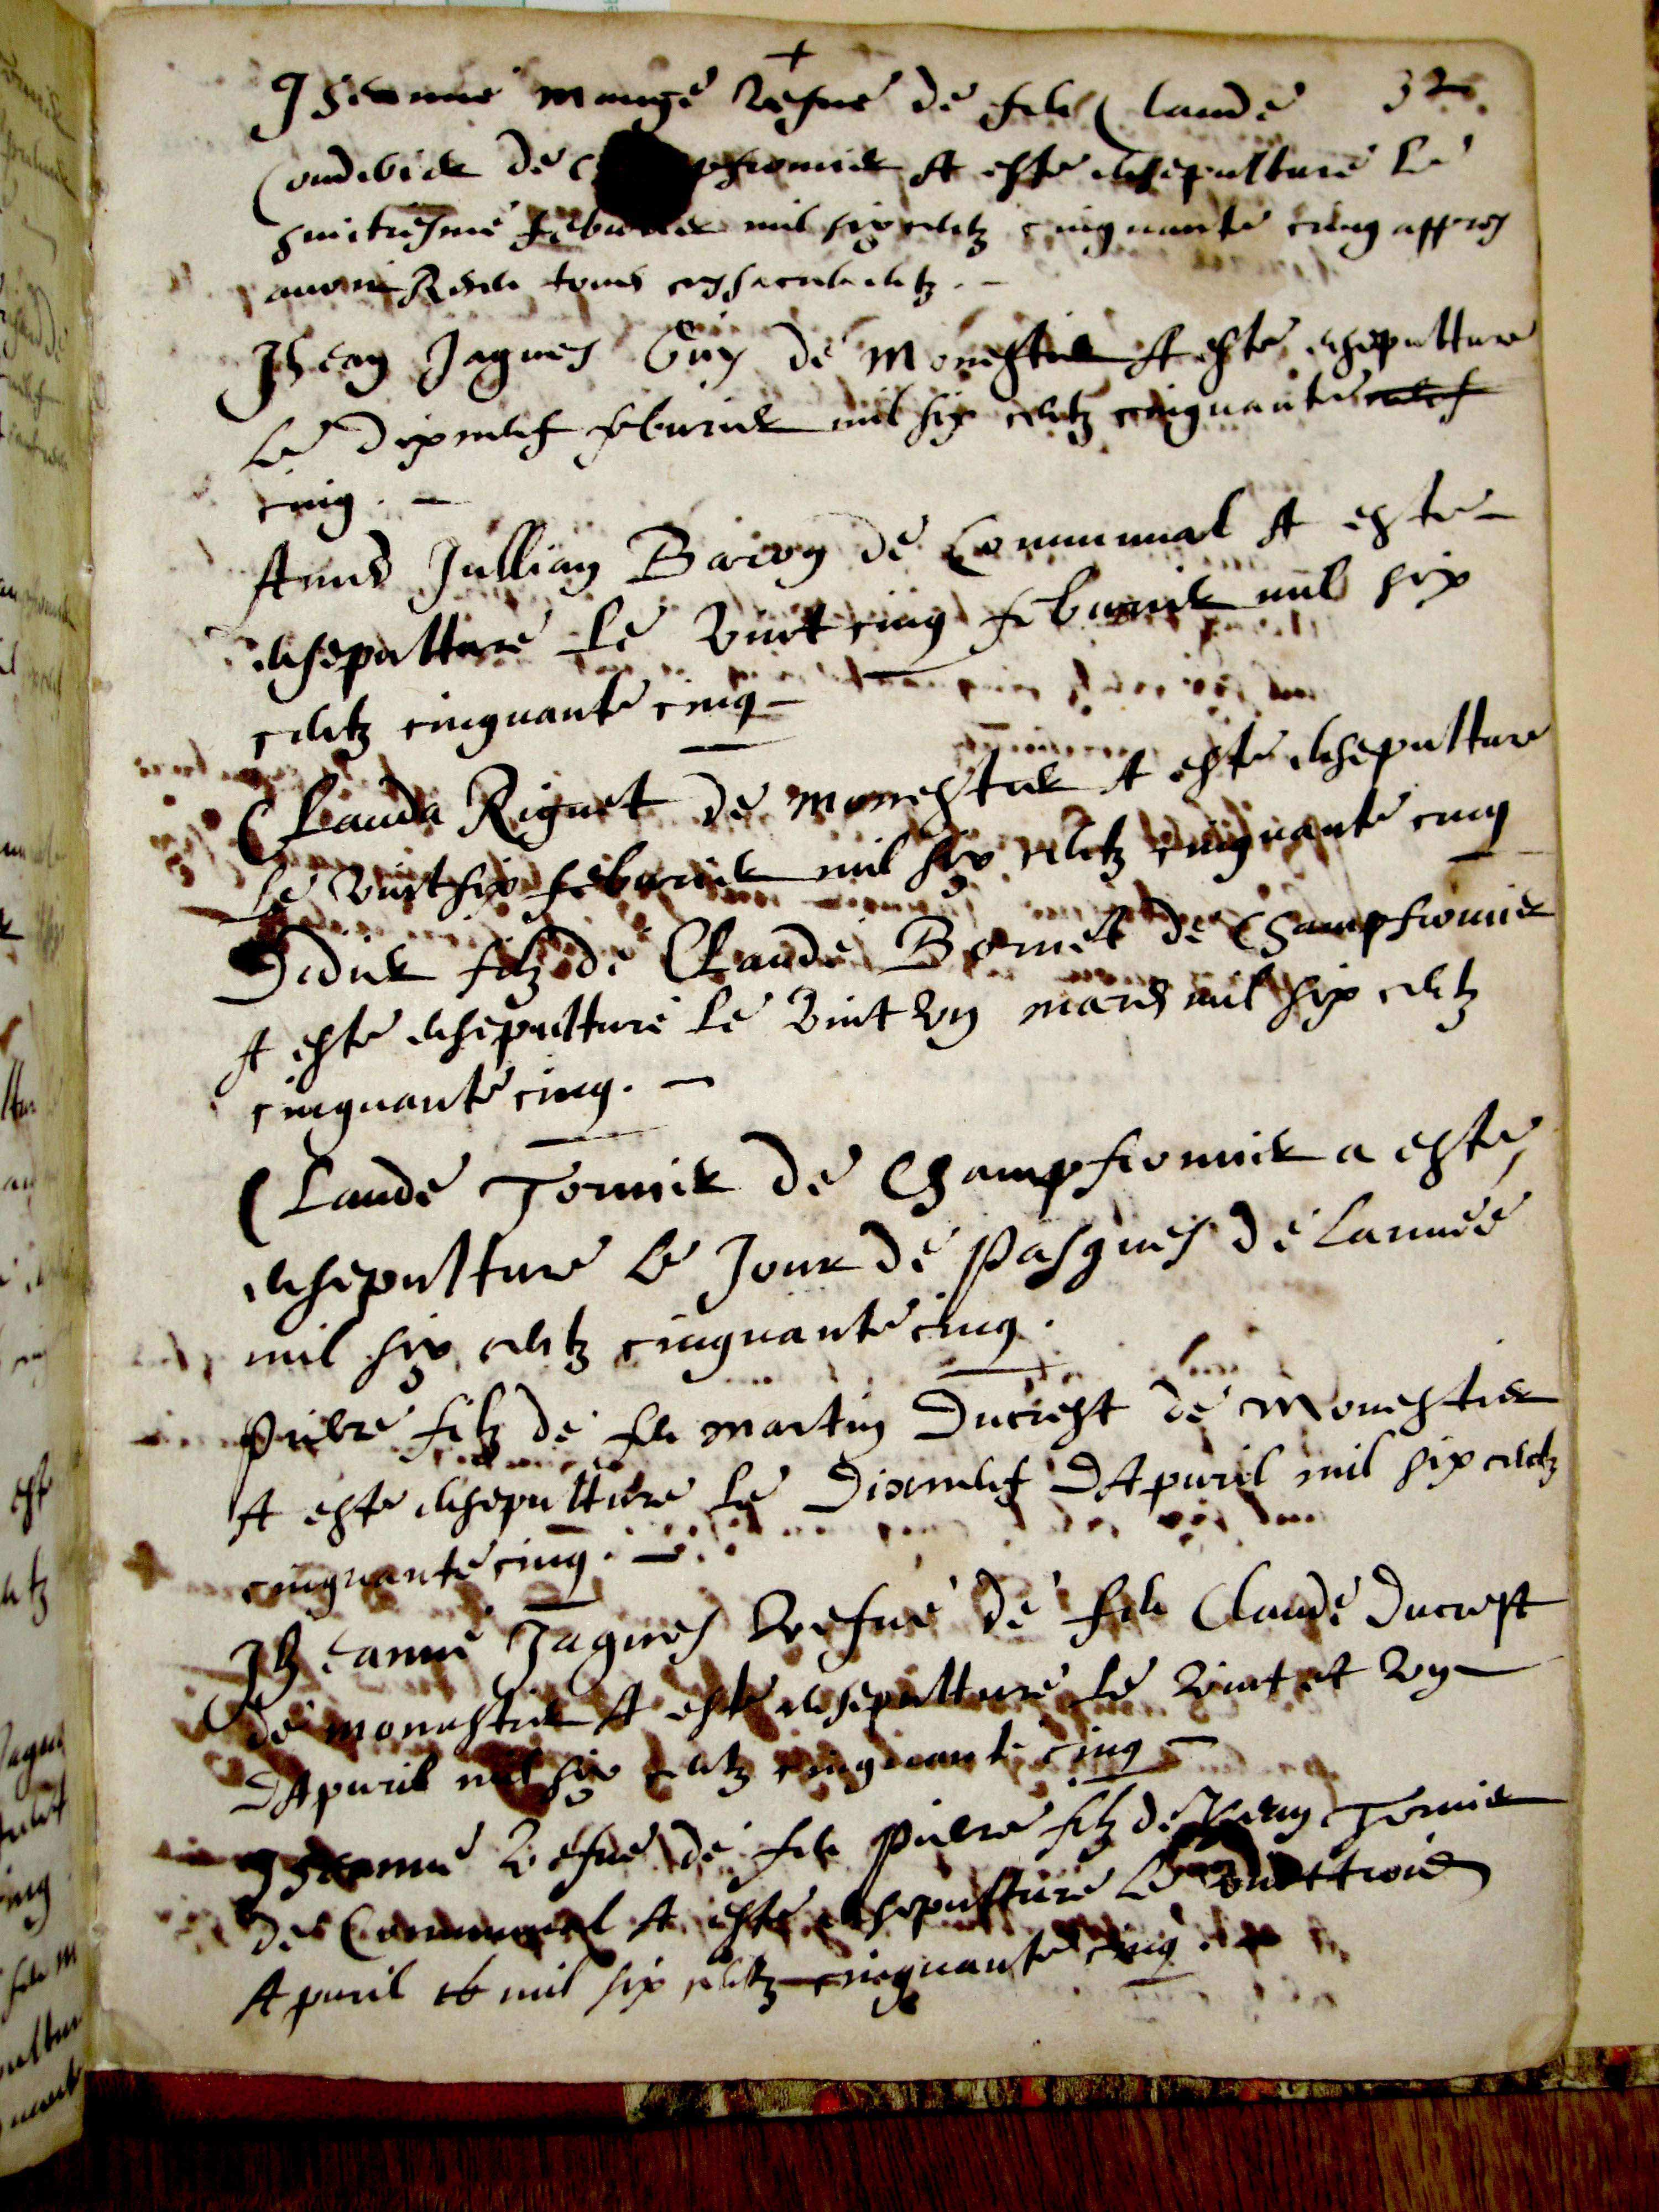 +
32
Jheanne monge vefue de feu Claude
Condevick de pfromier A este ensepulture le
huitiesme feburier mil six centz cinquante cinq appres
avoir Receu tous ces sacrementz. -
Jhean Jaques Guy de Monestier A este ensepulture
le dixneuf feburier mil six centz cinquante neuf
cinq. -
Anne Jullian Baron de Communal A este -
ensepulture le vint cinq feburier mil six
centz cinquante cinq -
Clauda Riguet de monestier A este ensepulture
le vint six feburier mil six centz cinquante cinq
Didier filz de Claude Bornet de Champfromier
A este ensepulture le vint vng mars mil six centz
cinquante cinq. -
Claude Tornier de Champfromier a este
ensepulture le Jour de Pasques de Lannee
mil six centz cinquante cinq.
Pierre filz de feu martin Ducrest de Monestier
A este ensepulture le Dixneuf DApuril mil six centz
cinquante cinq. -
Jheanne Jaques vefue de feu Claude Ducrest
de monestier A este ensepulture le vint et vng -
DApuril mil six centz cinquante cinq -
Jheanne vefue de feu Pierre filz de Jhean Tornier
de Communal A este ensepulture le vint trois
Apuril mil six centz cinquante cinq. -